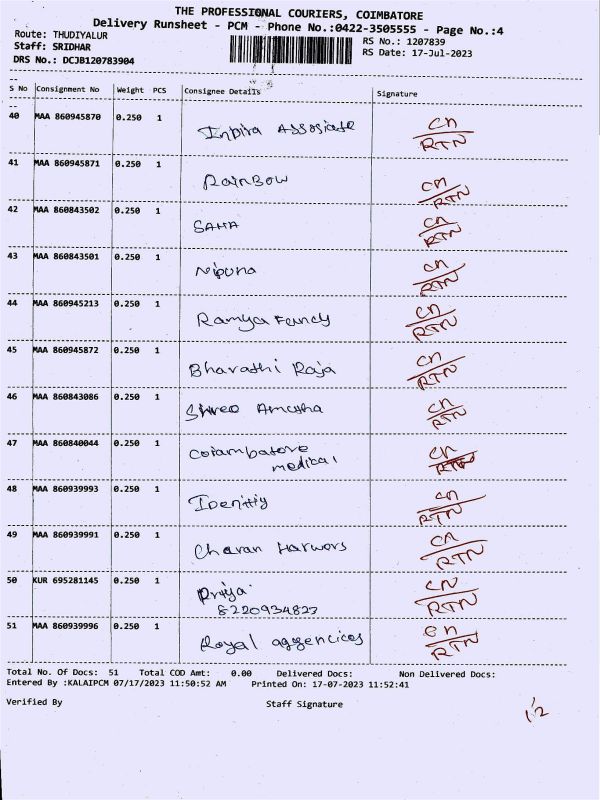 THE PROFESSIONAL COURIERS, COIMBATORE
Delivery Runsheet - PCM - Phone No.:0422-3505555 - Page No.:4
Route: THUDIYALUR
RS No.: 1207839
Staff: SRIDHAR
RS Date: 17-Jul-2023
DRS No.: DCJB120783904
S No Consignment No Weight PCS Consignee Details Signature
40 MAA 860945870 0.250 1 Indira Assosiate CN
RTN
41 MAA 860945871 0.250 1 Rainbow CN
RTN
42 MAA 860843502 0.250 1 SAHA CN
RTN
43 MAA 860843501 0.250 1 Nipuna CN
RTN
44 MAA 860945213 0.250 1 Ramya Fancy CN
RTN
45 MAA 860945872 0.250 1 Bharathi Raja CN
RTN
46 MAA 860843086 0.250 1 Shree CN
RTN
47 MAA 860840044 0.250 1 Coiambatore CN
medical RTN
48 MAA 860939993 0.250 1 Idenitiy CN
RTN
49 MAA 860939991 0.250 1 Charan Harwors CN
RTN
50 KUR 695281145 0.250 1 Priya CN
8220934823 RTN
51 MAA 860939996 0.250 1 Royal aggencices CN
RTN
Total No. Of Docs: 51 Total COD Amt: 0.00 Delivered Docs: Non Delivered Docs:
Entered By :KALAIPCM 07/17/2023 11:50:52 AM Printed On: 17-07-2023 11:52:41
Verified By Staff Signature
12